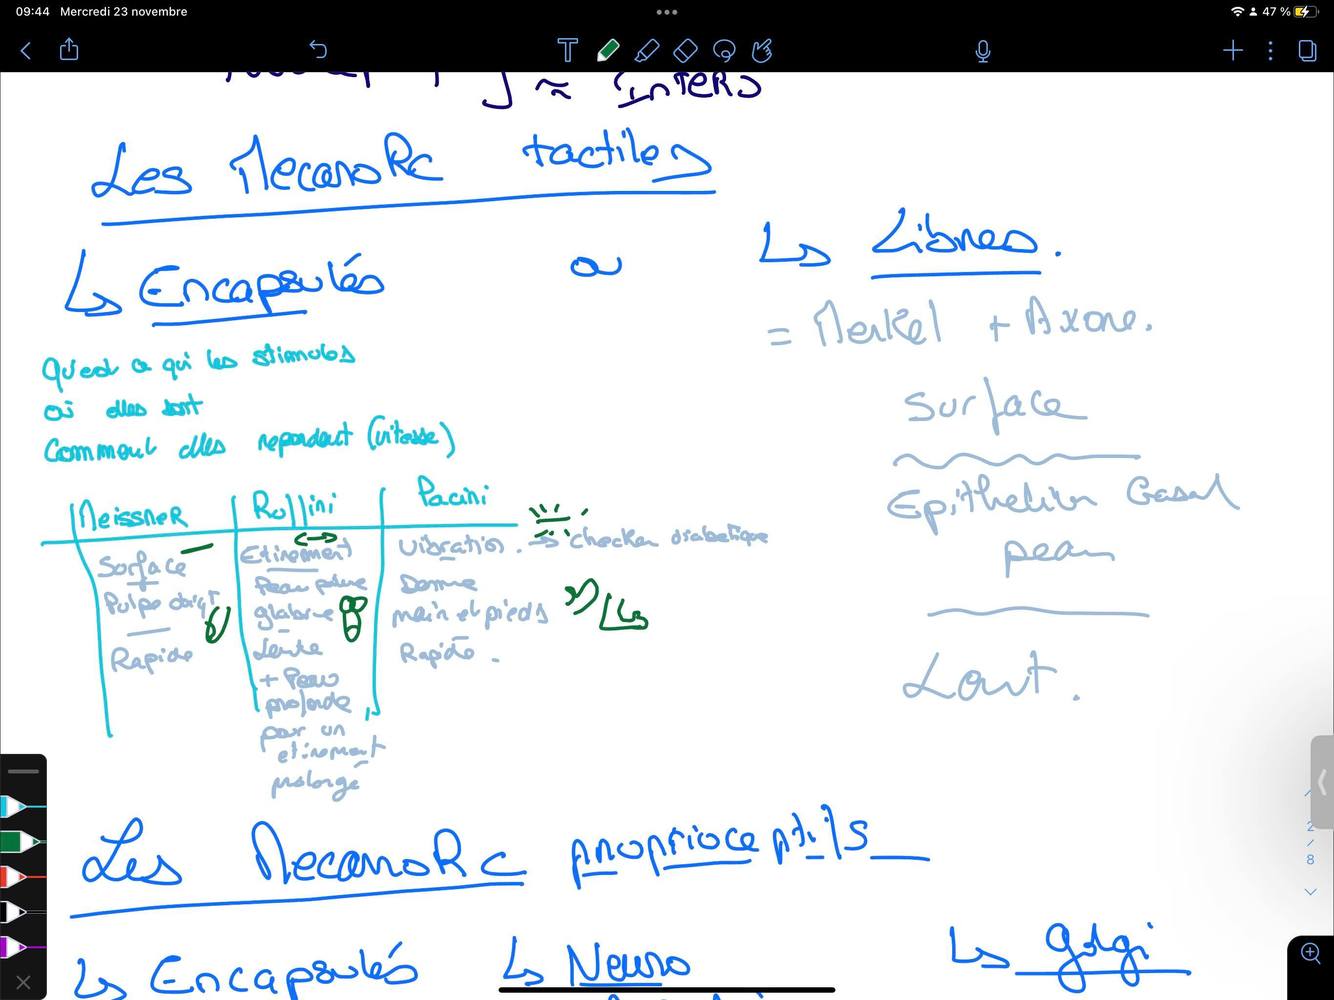 09:44 Mercredi 23 novembre
47 %
≈ Inters
Les MecanoRc tactiles
↳ Encapsulés ou ↳ Libres.
= Merkel + Axone.
Surface
Epithelium basal
peau
Lent.
Qu'est ce qui les stimules
où elles sont
Comment elles repondent (vitesse)
Meissner
Surface
Pulpe doigt
Rapide
Ruffini
Etirement
Peau
glabre
Lente
+ Peau
profonde
pour un
etirement
prolongé
Pacini
Vibration. → checker diabetique
Derme
main et pieds
Rapide.
Les MecanoRc proprioceptifs
↳ Encapsulés ↳ Neuro ↳ Golgi
2
/
8